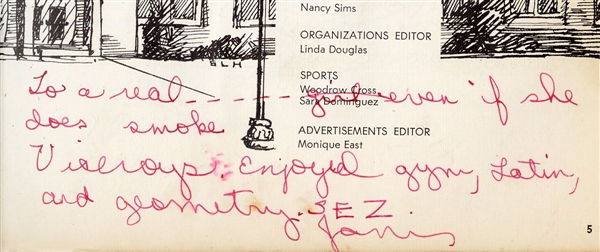 Nancy Sims
ORGANIZATIONS EDITOR
Linda Douglas
SLH
SPORTS
Woodrow Cross
Sara Dominguez
ADVERTISEMENTS EDITOR
Monique East
To a real _ _ _ _ _ girl even if she
does smoke
Viceroys. Enjoyed gym, Latin,
and geometry. SEZ
Janis
5